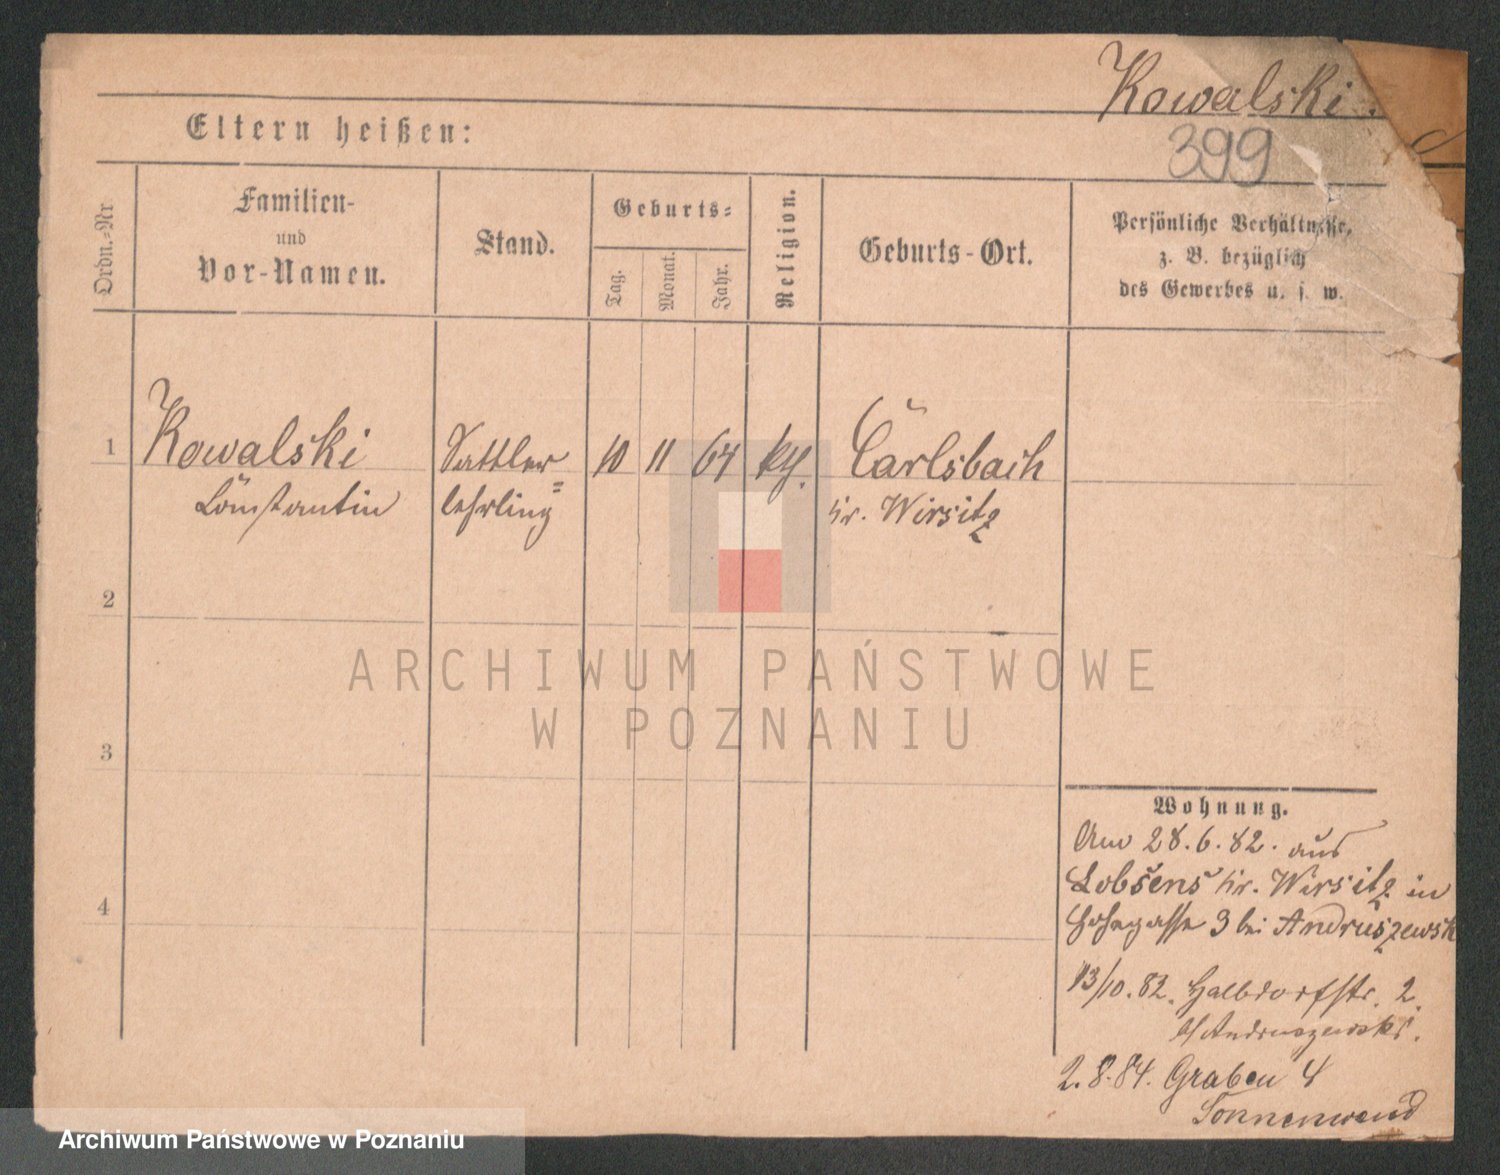 Kowalski.
399
Eltern heißen:
Ordn.-Nr
Familien-
und
Vor-Namen.
Stand.
Geburts-
Tag.
Monat.
Jahr.
Religion.
Geburts-Ort.
Persönliche Verhältnisse,
z. B. bezüglich
des Gewerbes u. s. w.
1
Kowalski
Constantin
Sattler=
lehrling
10 11 64
kth.
Carlsbach
Kr. Wirsitz
2
3
4
Wohnung.
Am 28.6.82. aus
Lobsens Kr. Wirsitz in
3 bei Andruszewsk
13/10.82. Halbdorfstr. 2.
b/Andruszewski.
2.8.84. Graben 4
Sonnenwend
ARCHIWUM PAŃSTWOWE
W POZNANIU
Archiwum Państwowe w Poznaniu